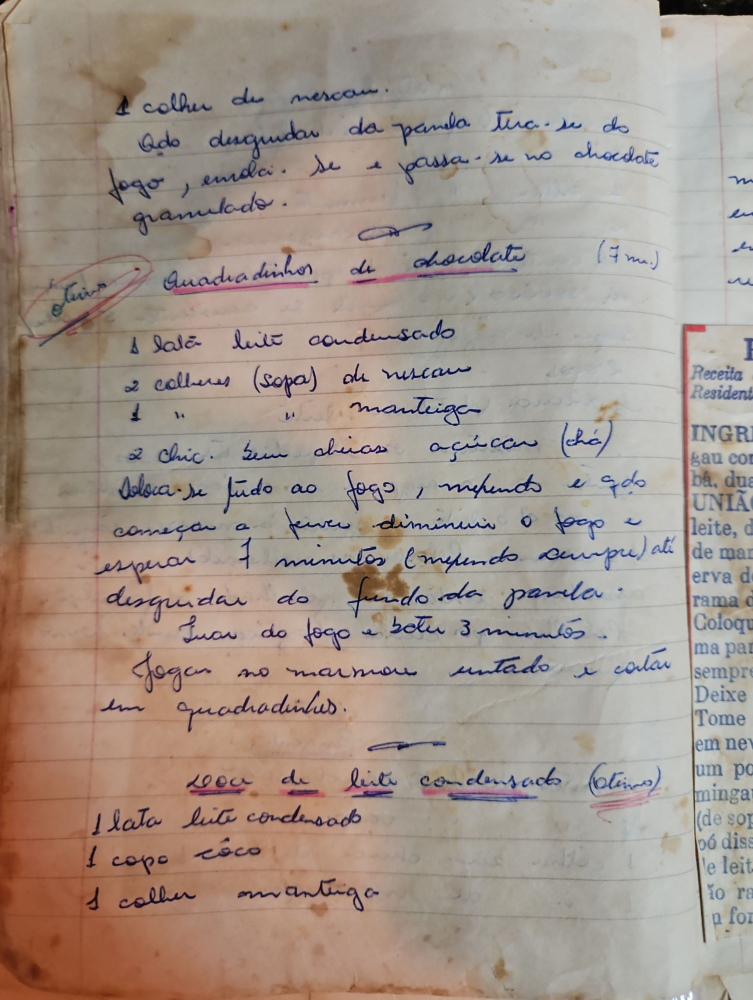 1 colher de nescau.
Qdo desgrudar da panela tira-se do
fogo, enrola-se e passa-se no chocolate
granulado.
Quadradinhos de chocolate (7 m.)
ótimo
1 lata leite condensado
2 colheres (sopa) de nescau
1 " " manteiga
2 chic. bem cheias açúcar (chá)
Coloca-se tudo ao fogo, mexendo e qdo
começar a ferver diminuir o fogo e
esperar 7 minutos (mexendo sempre) até
desgrudar do fundo da panela.
Tirar do fogo e bater 3 minutos.
Jogar no marmore untado e cortar
em quadradinhos.
Doce de leite condensado (ótimo)
1 lata leite condensado
1 copo côco
1 colher manteiga
Receita
Resident
INGRE
gau con
bá, dua
UNIÃO
leite, d
de man
erva do
rama d
Coloqu
ma pan
sempre
Deixe
Tome
em nev
um po
mingau
(de sop
pó diss
e leit
ão ra
a for